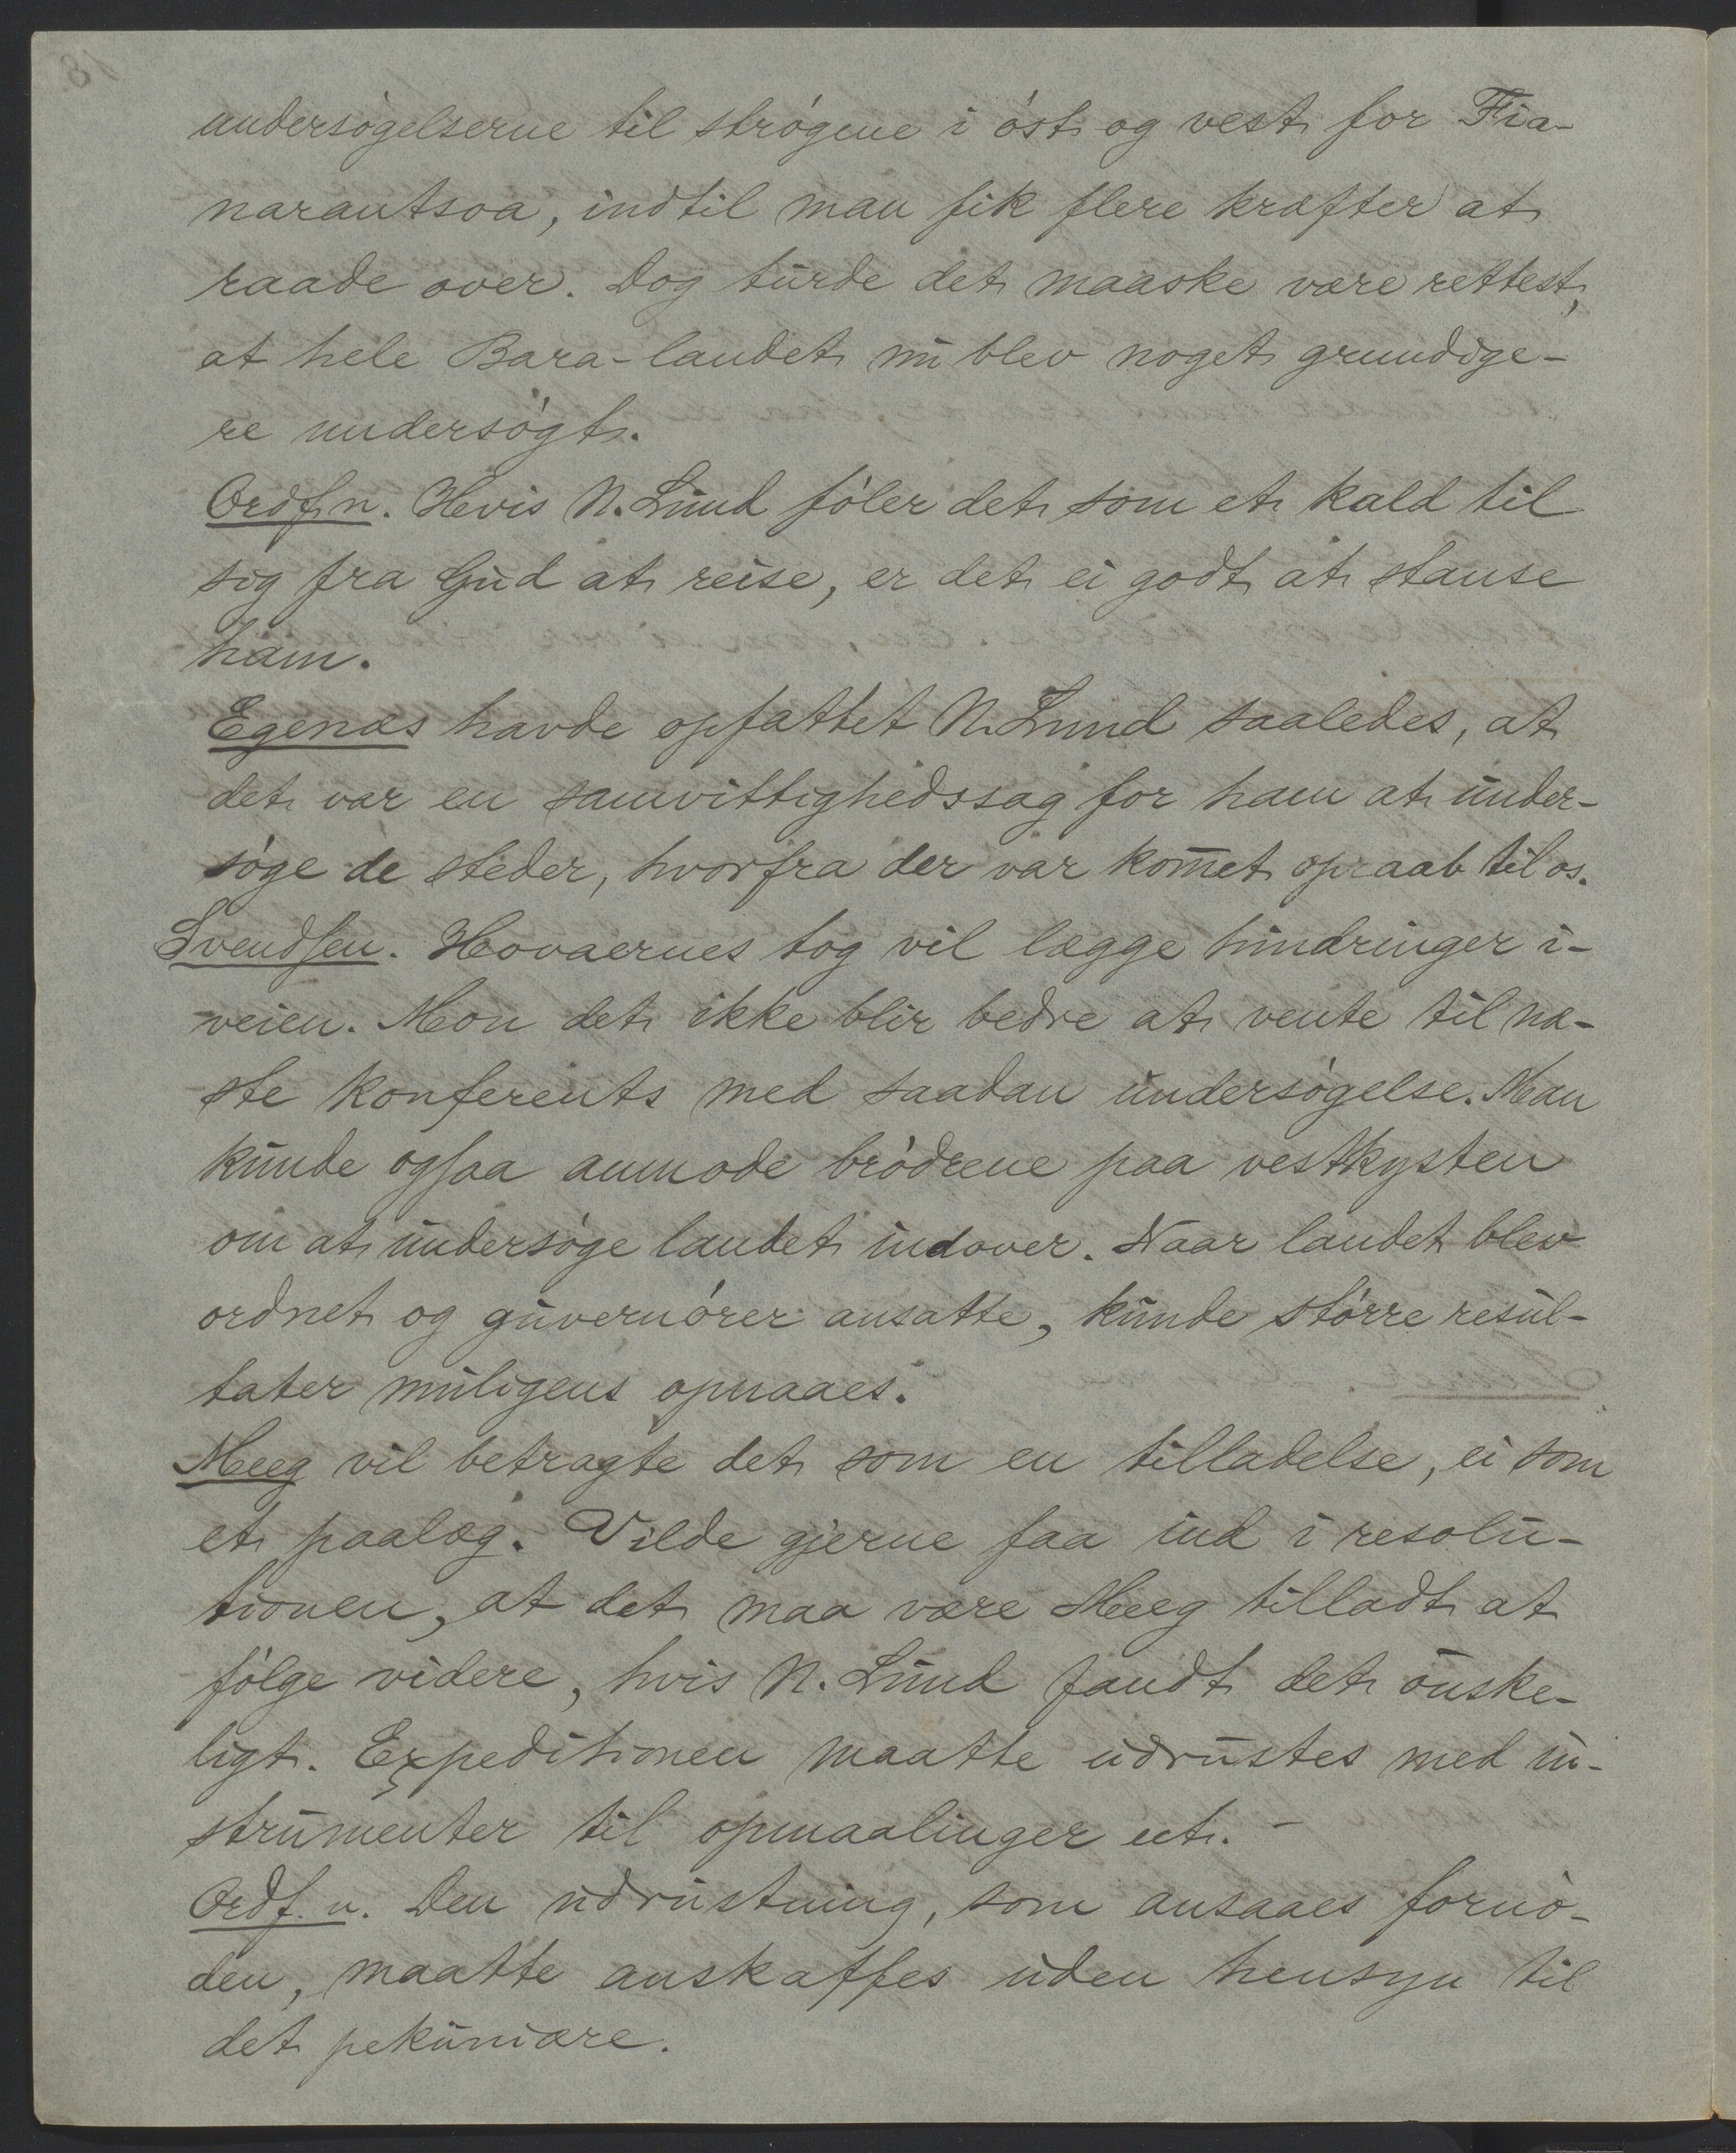 undersøgelserne til strøgene i øst og vest for Fia-
narantsoa, indtil man fik flere kræfter at
raade over. Dog turde det maaske være rettest,
at hele Bara-landet nu blev noget grundige-
re undersøgt.
Ordf.n. Hvis N. Lund føler det som et kald til
sig fra Gud at reise, er det ei godt at stanse
ham.
Egenæs havde opfattet N. Lund saaledes, at
det var en samvittighedssag for ham at under-
søge de steder, hvorfra der var kom̄et opraab til os.
Svendsen. Hovaernes tog vil lægge hindringer i-
veien. Mon det ikke blir bedre at vente til næ-
ste konferents med saadan undersøgelse. Man
kunde ogsaa anmode brødrene paa vestkysten
om at undersøge landet indover. Naar landet blev
ordnet og guvernører ansatte, kunde større resul-
tater muligens opnaaes.
Meeg vil betragte det som en tilladelse, ei som
et paalæg. Vilde gjerne faa ind i resolu-
tionen, at det maa være Meeg tilladt at
følge videre, hvis N. Lund fandt det ønske-
ligt. Expeditionen maatte udrustes med in-
strumenter til opmaalinger ect. -
Ordf. n. Den udrustning, som ansaaes fornø-
den, maatte anskaffes uden hensyn til
det pekuniære.